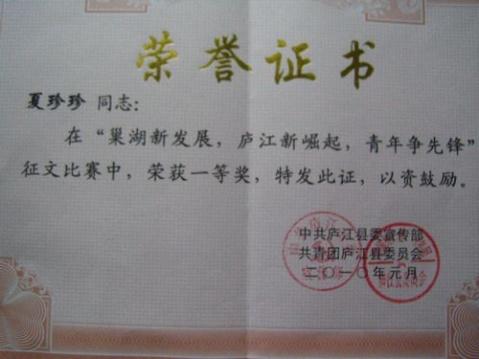 荣誉证书
夏珍珍 同志：
在“巢湖新发展，庐江新崛起，青年争先锋”
征文比赛中，荣获一等奖，特发此证，以资鼓励。
中共庐江县委宣传部
共青团庐江县委员会
二〇一〇年元月